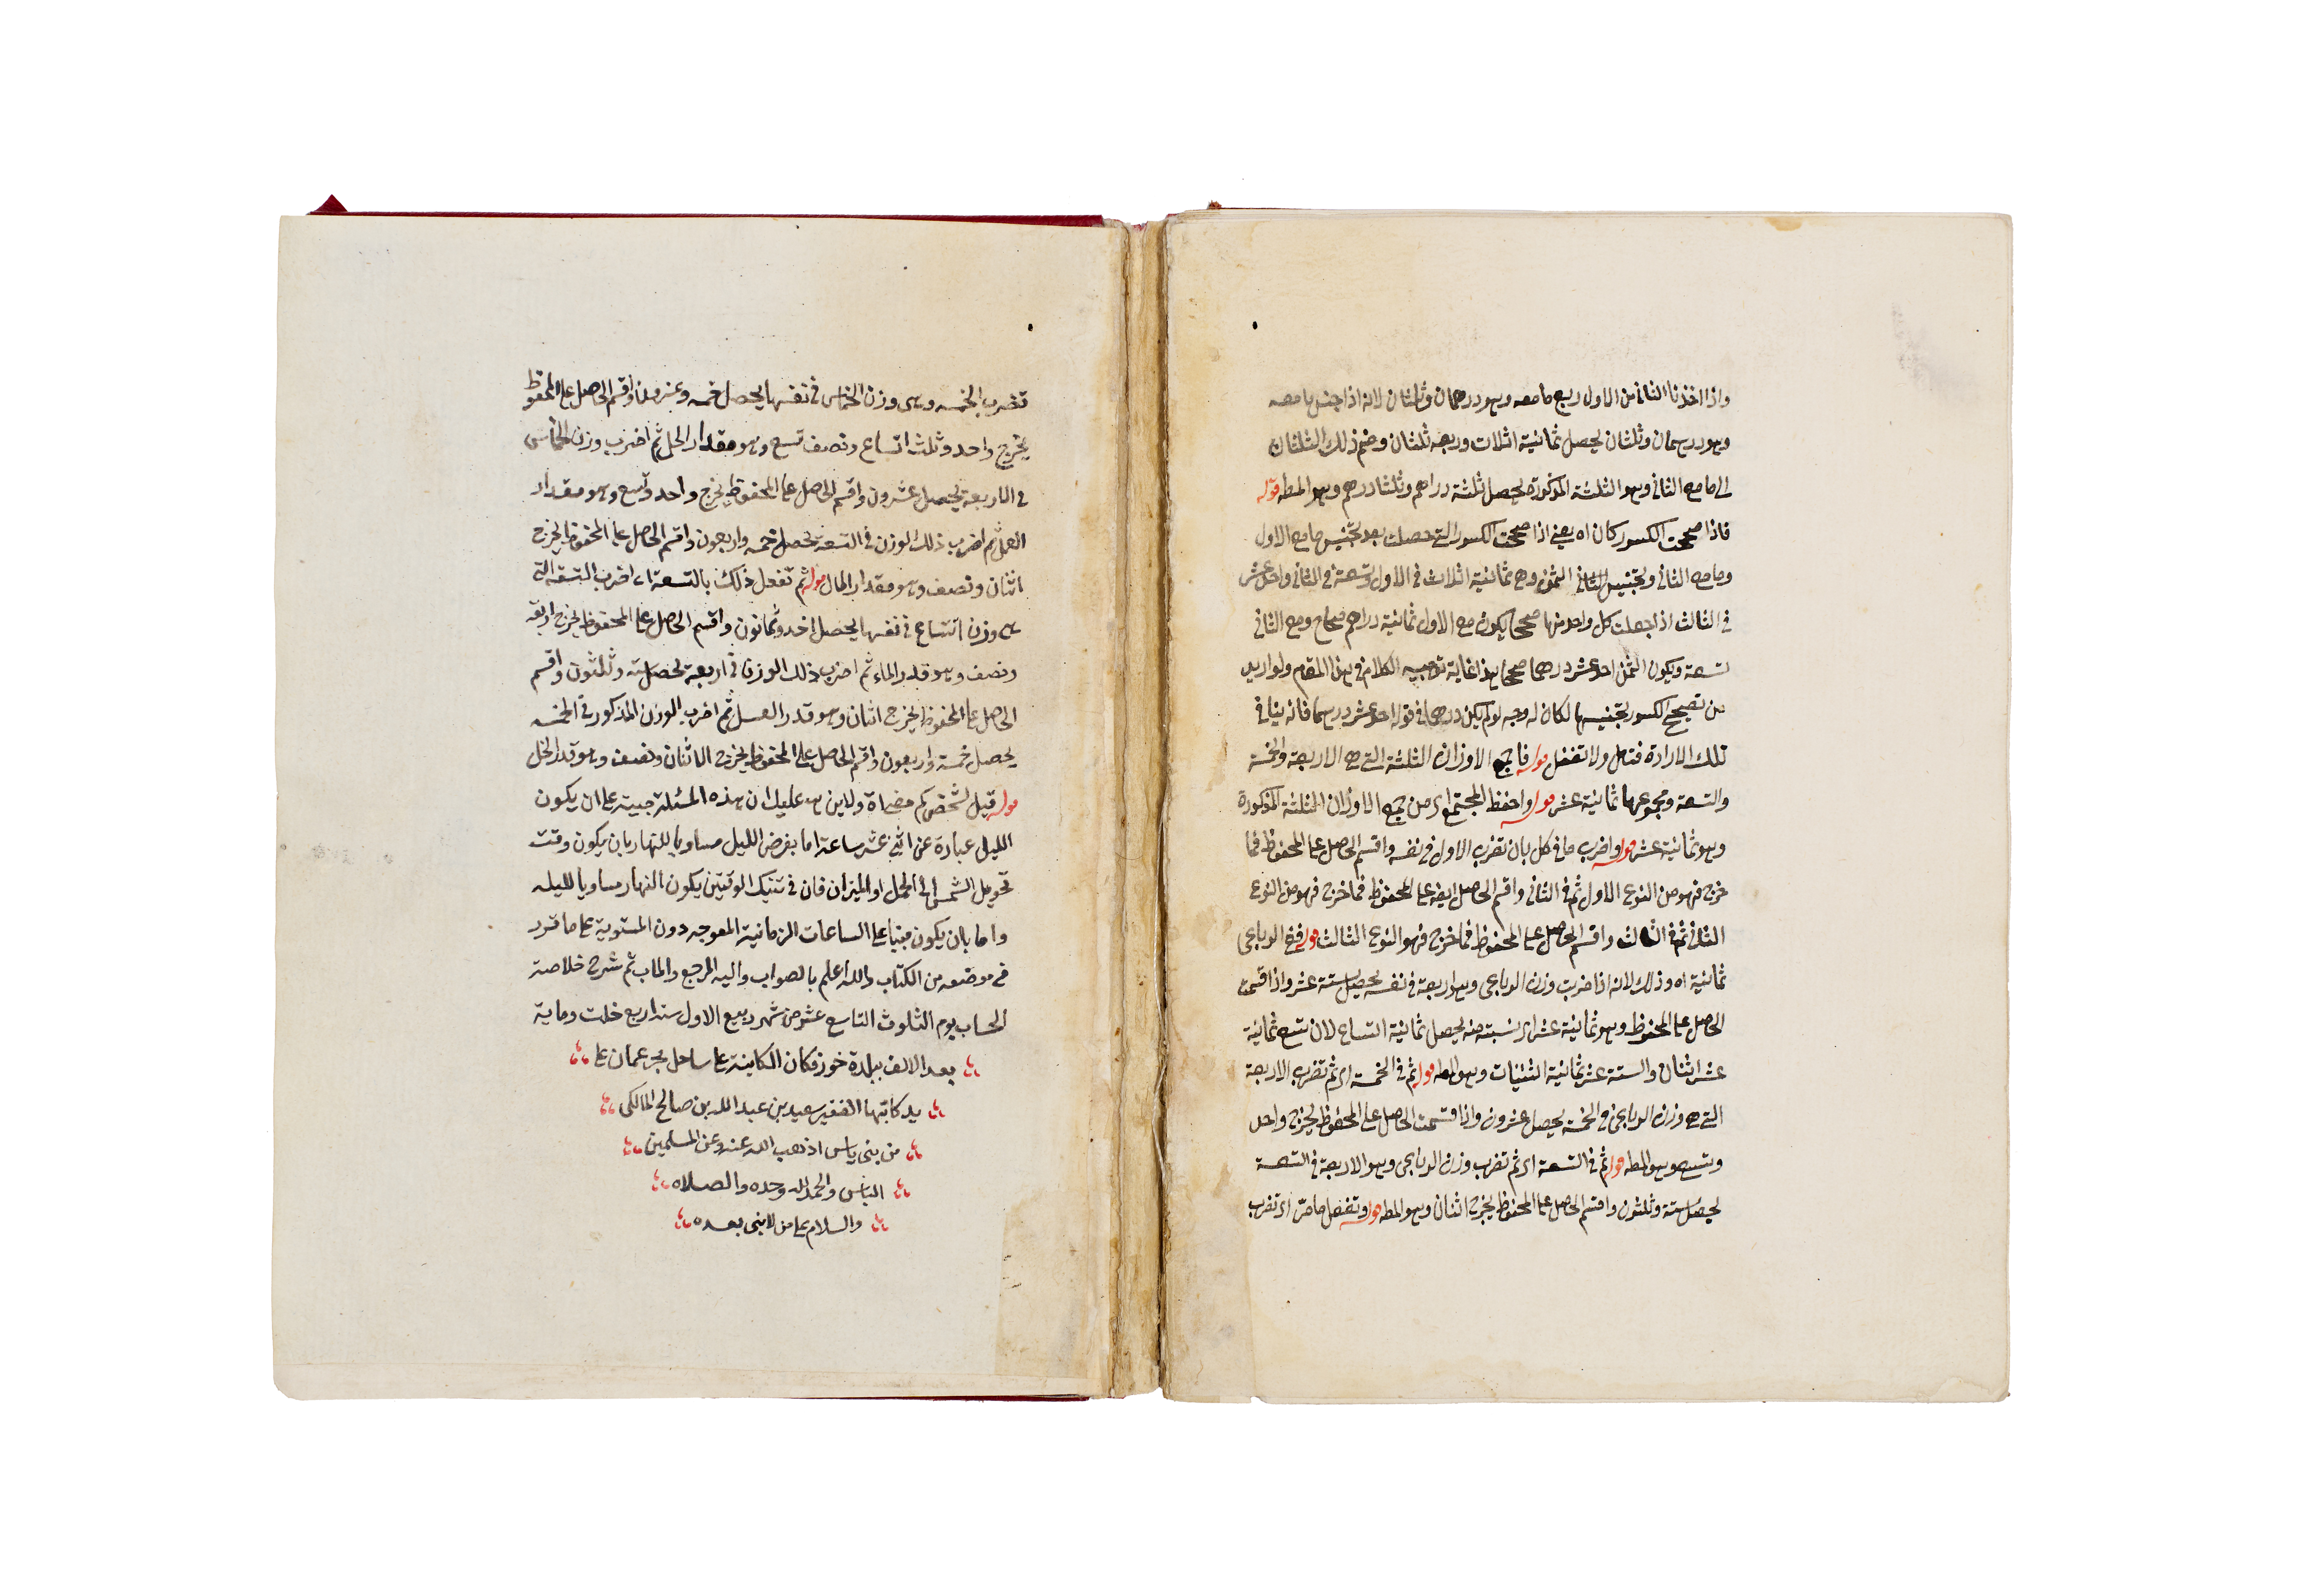 واذا اخذنا الثاني من الاول ربع ما معه وهو درهمان وثلثان لانه اذا جنس ما معه
وهو درهمان وثلثان يحصل ثمانية اثلاث وربعه ثلثان وضم ذلك الثلثان
الى ما مع الثاني وهو الثلثة المذكورة يحصل ثلثة دراهم وثلثا درهم وهو المط قوله
فاذا صححت الكسور كان اه يعني اذا صححت الكسور التي حصلت بعد تجنيس ما مع الاول
وما مع الثاني وتجنيس الثاني الثمن وهي ثمانية اثلاث في الاول وتسعة في الثاني واحد عشر
في الثالث اذا جعلت كل واحد منها صحيحا يكون مع الاول ثمانية دراهم صحاح ومع الثاني
تسعة ويكون الثمن احد عشر درهما صحيحا هذا غاية توجيه الكلام في هذا المقام ولو اريد
من تصحيح الكسور تجنيسها لكان له وجه لو لم يكن درهما في قوله احد عشر درهما فانه ينافي
تلك الارادة فتامل ولا تغفل قوله فاجمع الاوزان الثلثة التي هي الاربعة والخمسة
والتسعة ومجموعها ثمانية عشر قوله واحفظ المجتمع اي من جمع الاوزان الثلثة المذكورة
وهو ثمانية عشر قوله واضرب ما في كل بان تضرب الاول في نفسه واقسم الحاصل على المحفوظ فما
خرج فهو من النوع الاول ثم في الثاني واقسم الحاصل ايضا على المحفوظ فما خرج فهو من النوع
الثاني ثم في الثالث واقسم الحاصل على المحفوظ فما خرج فهو النوع الثالث قوله ففي الرباعي
ثمانية اه وذلك لانه اذا ضرب وزن الرباعي وهو اربعة في نفسه يحصل ستة عشر واذا قسمت
الحاصل على المحفوظ وهو ثمانية عشر اي نسبته منه يحصل ثمانية اتساع لان تسع ثمانية
عشر اثنان والستة عشر ثمانية اثنينات وهو المط قوله ثم في الخمسة اي ثم تضرب الاربعة
التي هي وزن الرباعي في الخمسة يحصل عشرون واذا قسمت الحاصل على المحفوظ يخرج واحد
وتسع وهو المط قوله ثم في التسعة اي ثم تضرب وزن الرباعي وهو الاربعة في التسعة
يحصل ستة وثلثون واقسم الحاصل على المحفوظ يخرج اثنان وهو المط قوله وتفعل ما مر اي تضرب
تضرب الخمسة وهي وزن الخماسي في نفسها يحصل خمسه وعشرون واقسم الحاصل على المحفوظ
يخرج واحد وثلث اتساع ونصف تسع وهو مقدار الخل ثم اضرب وزن الخماسي
في الاربعة يحصل عشرون واقسم الحاصل على المحفوظ يخرج واحد وتسع وهو مقدار
العسل ثم اضرب ذلك الوزن في التسعة يحصل خمسه واربعون واقسم الحاصل على المحفوظ يخرج
اثنان ونصف وهو مقدار الماء قوله ثم تفعل ذلك بالتسعة اي اضرب التسعة التي
هي وزن اتساع في نفسها يحصل احد وثمانون واقسم الحاصل على المحفوظ يخرج اربعة
ونصف وهو قدر الماء ثم اضرب ذلك الوزن في اربعة يحصل ستة وثلثون واقسم
الحاصل على المحفوظ يخرج اثنان وهو قدر العسل ثم اضرب الوزن المذكور في الخمسه
يحصل خمسة واربعون واقسم الحاصل على المحفوظ يخرج الاثنان ونصف وهو قدر الخل
قوله قيل لشخص كم مضى اه ولا يذهب عليك ان هذه المسئلة مبنية على ان يكون
الليل عبارة عن اثني عشر ساعة اما بفرض الليل مساويا للنهار بان يكون وقت
تحويل الشمس الى الحمل او الميزان فان في تينك الوقتين يكون النهار مساويا لليله
واما بان يكون مبنيا على الساعات الزمانية المعوجه دون المستوية على ما قرر
في موضعه من الكتاب والله اعلم بالصواب واليه المرجع والماب تم شرح خلاصة
الحساب يوم الثلوث التاسع عشر من شهر ربيع الاول سنة اربع خلت وماية
بعد الالف ببلدة خورفكان الكاينة على ساحل بحر عمان على
يد كاتبها الفقير سعيد بن عبد الله بن صالح المالكي
من بني ياس اذهب الله عنه وعن المسلمين
الباس والحمد لله وحده والصلاه
والسلام على من لا نبي بعده